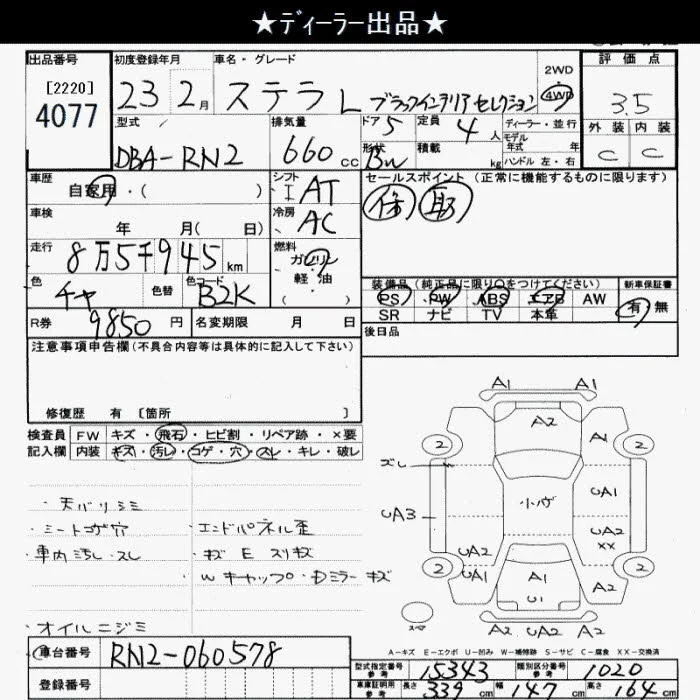 ★ディーラー出品★
出品番号 初度登録年月 車名・グレード 2WD 評価点
[2220]
4077
23 2月 ステラ L ブラックインテリアセレクション 4WD 3.5
型式 排気量 ドア 定員 ディーラー・並行 外装 内装
5 4人 モデル年式 年
DBA-RN2 660cc 形状 Bw 積載 kg ハンドル 左・右 C C
車歴 シフト セールスポイント(正常に機能するものに限ります)
自家用・( ) I AT 保 取
車検 冷房
年 月( 日) AC
走行 燃料
8万5千945km ガソリン・軽油
( )
色 色替 色コード 装備品(純正品に限り○をつけてください) 新車保証書
チャ B2K PS PW ABS エアB AW 有 無
SR ナビ TV 本革
R券 9850円 名変期限 月 日 後日品
注意事項申告欄(不具合内容等は具体的に記入して下さい)
修復歴 有 [箇所 ]
検査員 FW キズ・飛石・ヒビ割・リペア跡・×要
記入欄 内装 キズ・汚レ・コゲ・穴・スレ・キレ・破レ
・天バリシミ
・シートコゲ穴 ・エンドパネル歪
・車内汚し・スレ ・キズ E スリキズ
・W キャップ・Dミラー キズ
・オイルニジミ
A1 A1
A2
2 A1 2
ズレ
小ハゲ UA1
UA3
UA2 UA2 XX
2 UA1 A1 2
U1 A2
スペア A2 UA2 A2
A-キズ E-エクボ U-凹み W-補修跡 S-サビ C-腐食 XX-交換済
車台番号 RN2-060578
型式指定番号 参考 15343 類別区分番号 参考 1020
登録番号 車庫証明用 参考 長さ 339cm 幅 147cm 高さ 164cm